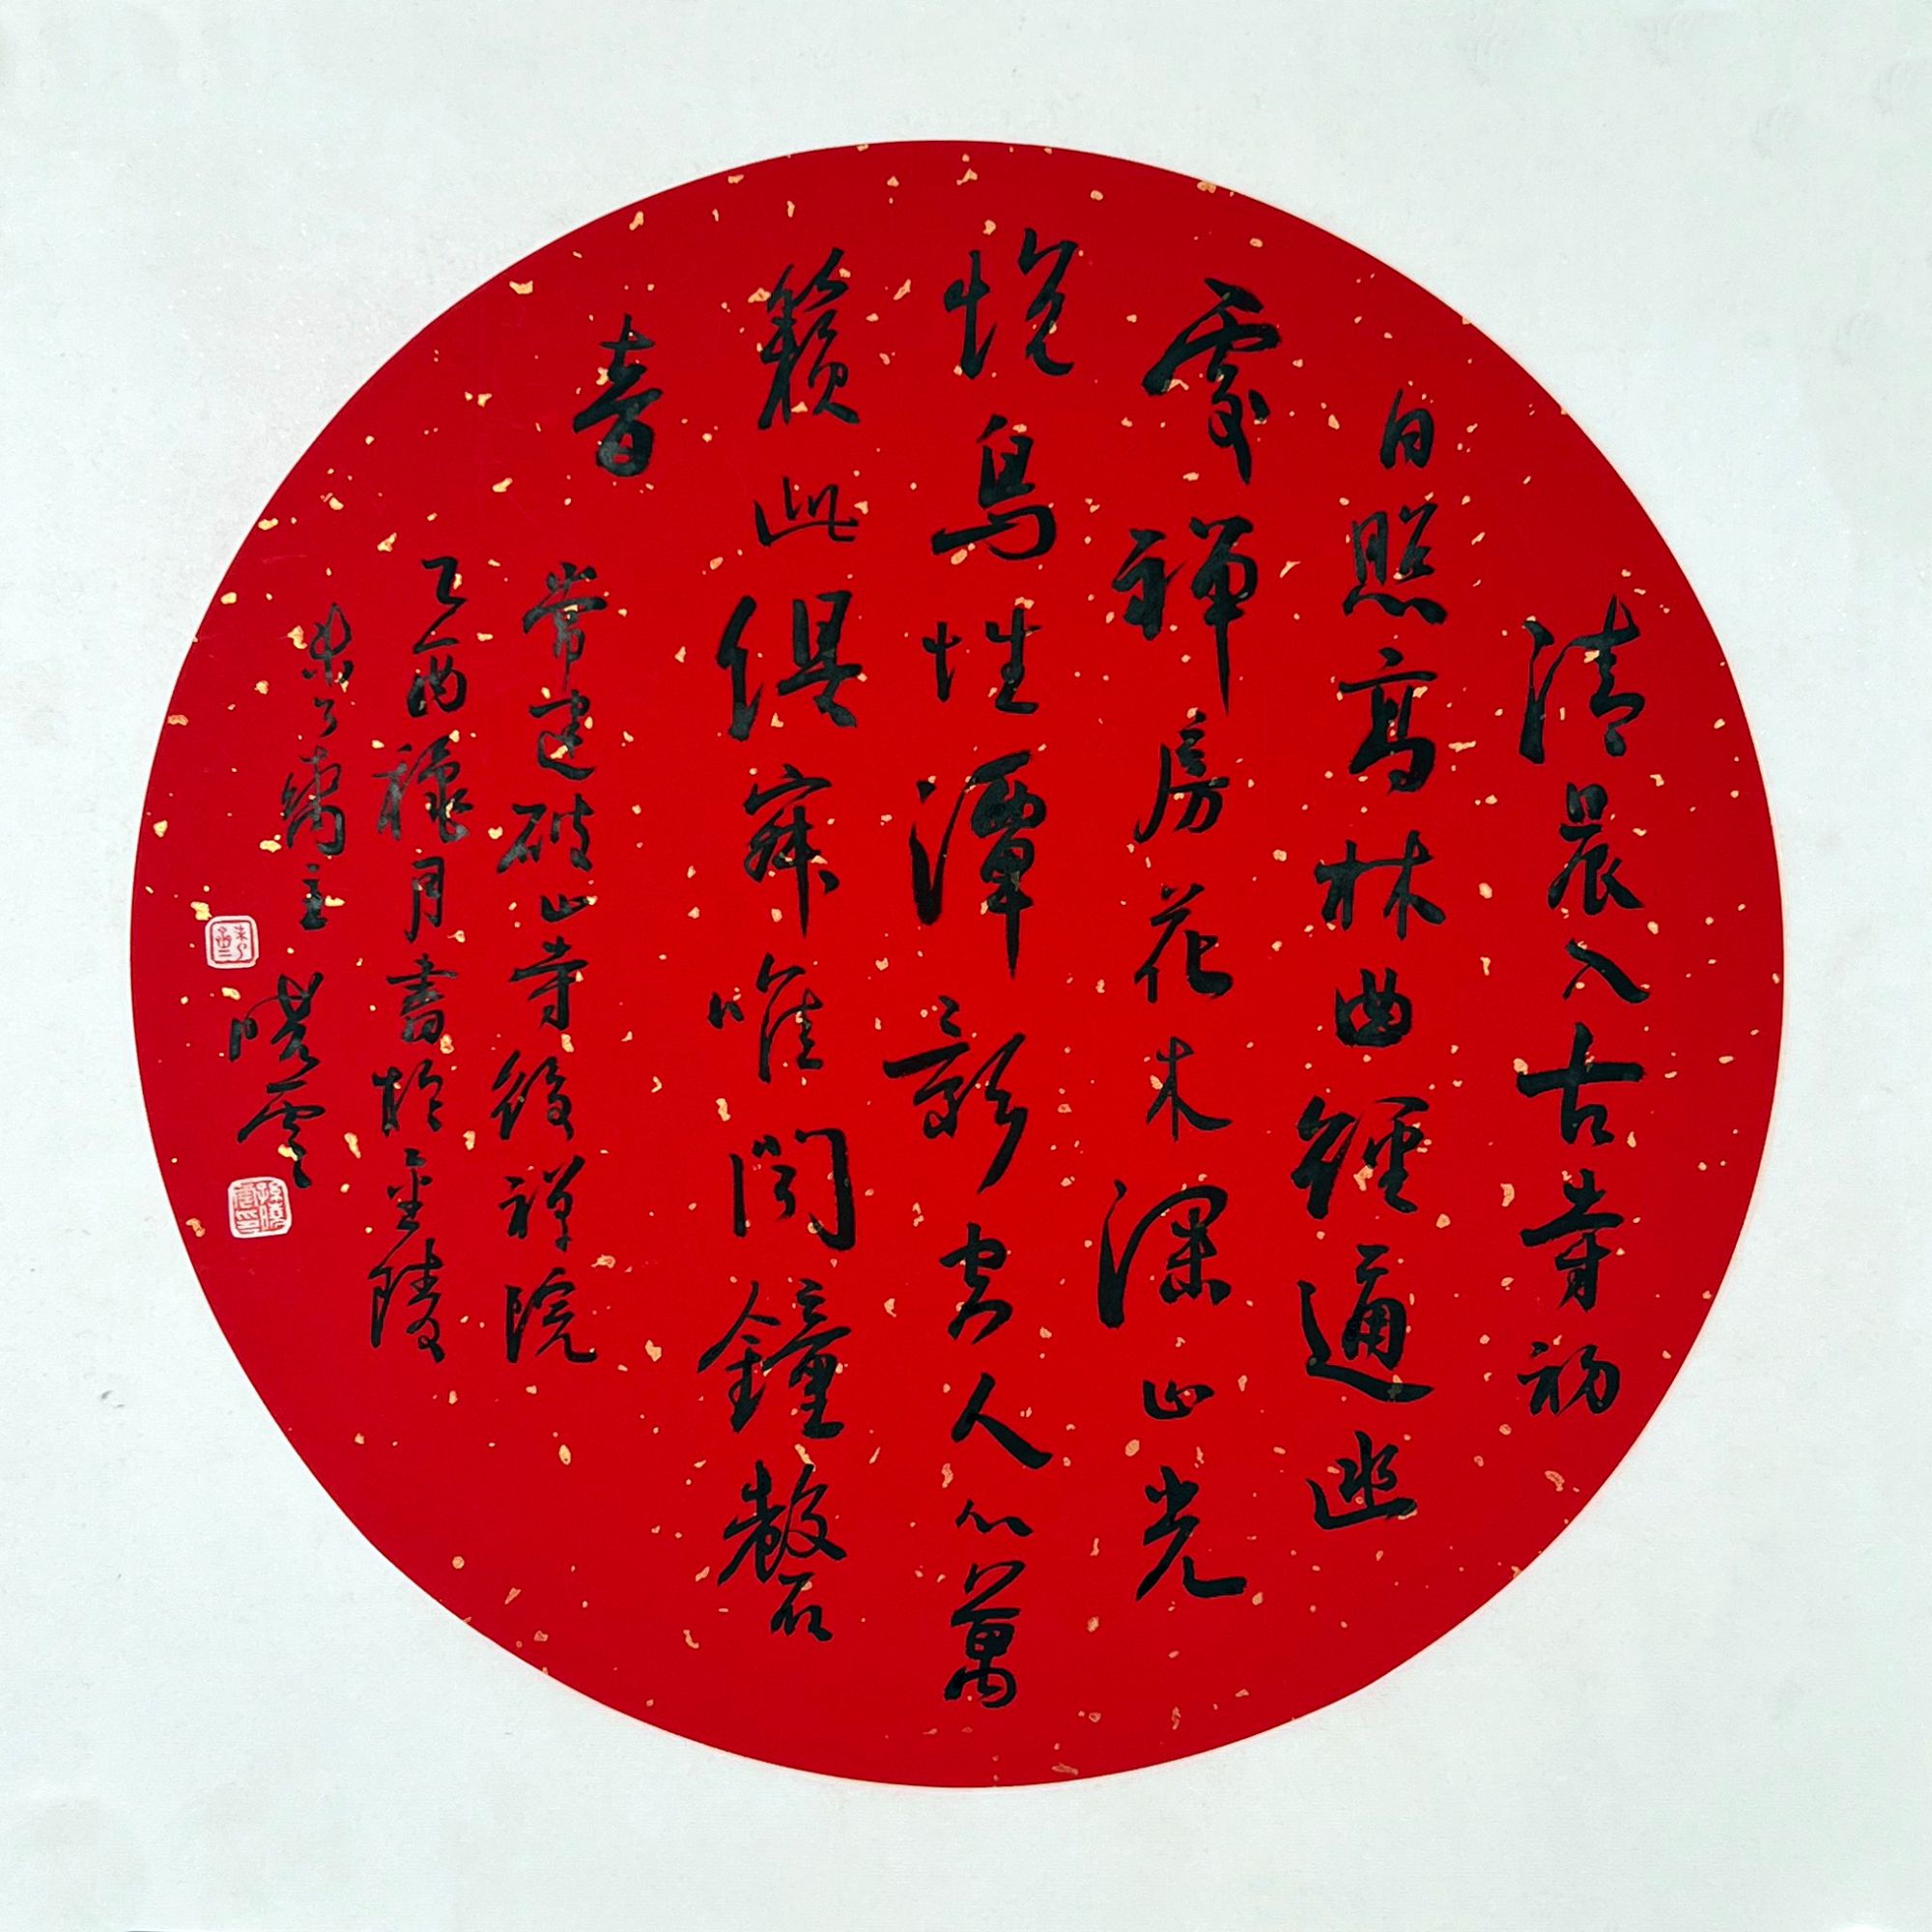 清晨入古寺初
日照高林曲徑通幽
處禪房花木深山光
悅鳥性潭影空人心萬
籟此俱寂唯聞鐘磬
音
常建破山寺後禪院
乙酉穐月書於金陵
未了齋主 曉雲